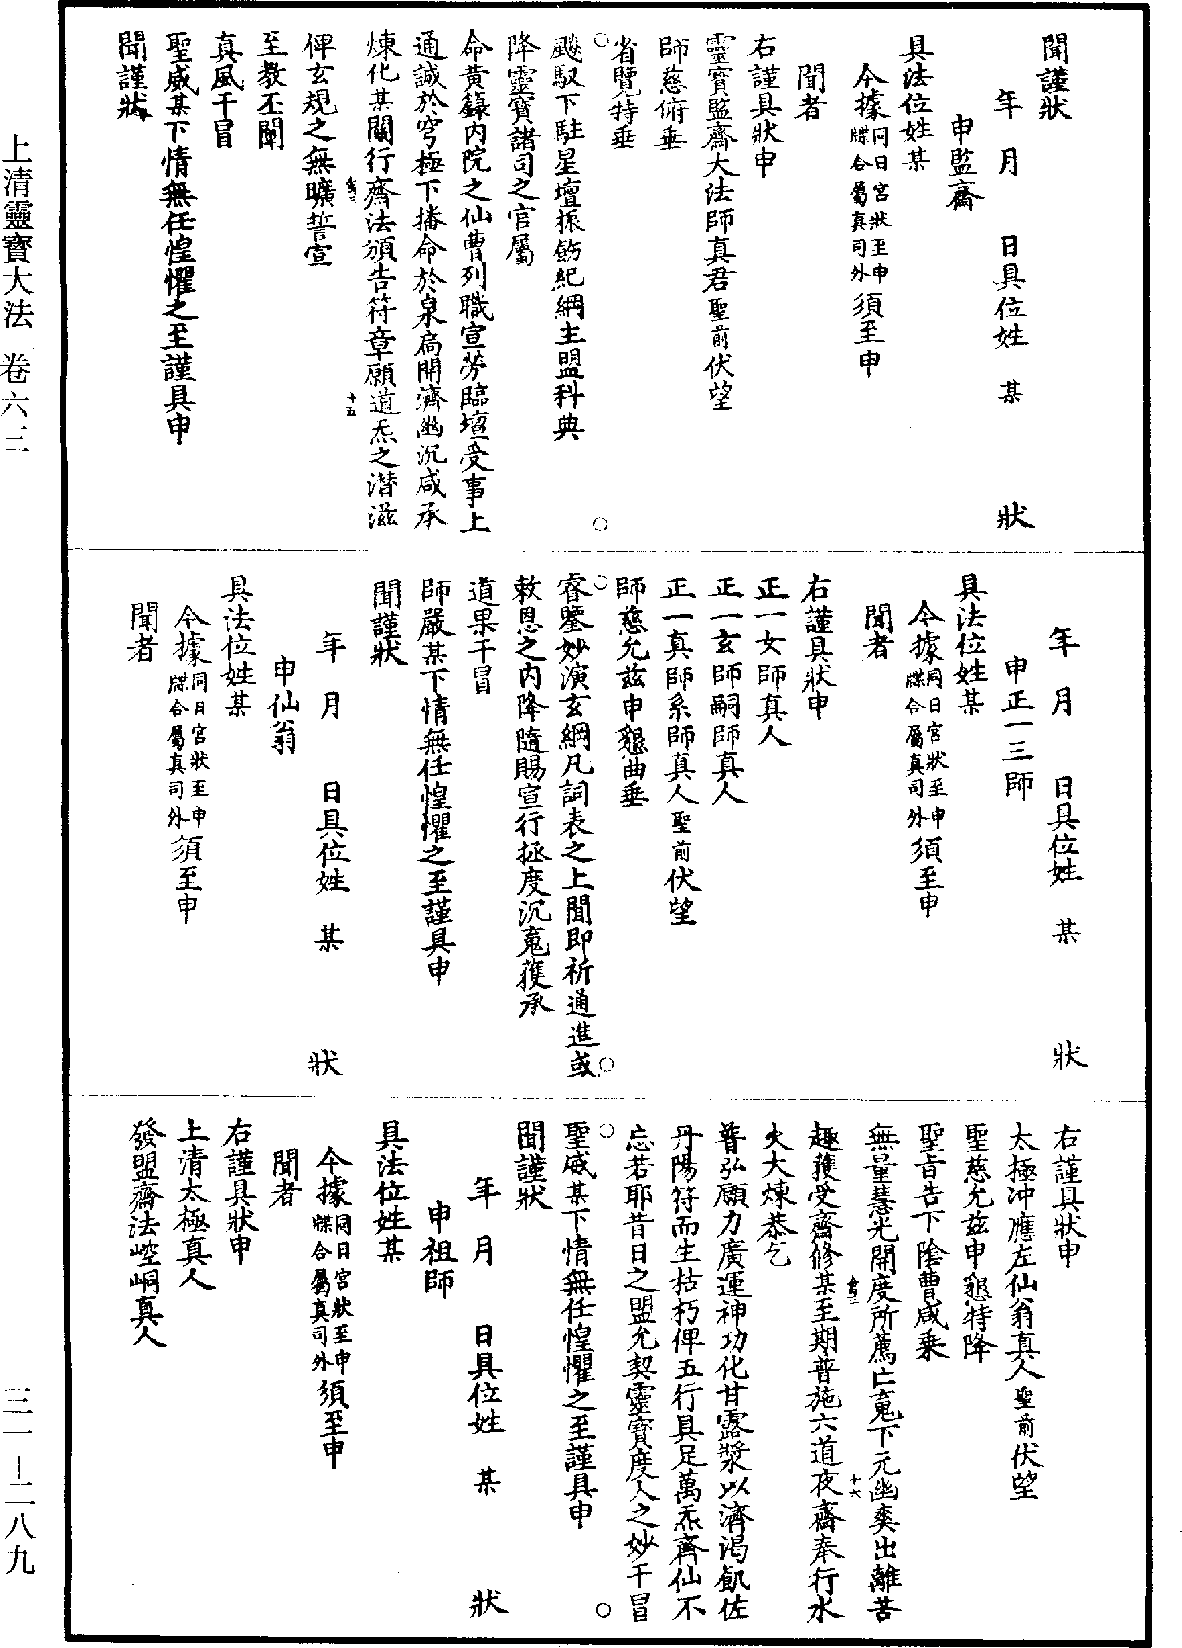 聞謹狀
年　月　　日具位姓　某　　　狀
申監齋
具法位姓某
今據同日宮狀至申牒合屬真司外須至申
聞者
右謹具狀申
靈寶監齋大法師真君聖前伏望
師慈俯垂
省覽特垂
飈馭下駐星壇振飭紀綱主盟科典
降靈寶諸司之官屬
命黃籙内院之仙曹列職宣勞臨壇受事上
通誠於穹極下播命於泉扃開濟幽沉咸承
煉化某關行齋法頒告符章願道炁之潛滋
十五
俾玄規之無曠誓宣
至教丕闡
真風干冒
聖威某下情無任惶懼之至謹具申
聞謹狀
年　月　　日具位姓　某　　　狀
申正一三師
具法位姓某
今據同日宮狀至申牒合屬真司外須至申
聞者
右謹具狀申
正一女師真人
正一玄師嗣師真人
正一真師系師真人聖前伏望
師慈允兹申懇曲垂
睿鑒妙演玄綱凡詞表之上聞即祈通進或
敕恩之内降隨賜宣行拯度沉䰟獲承
道果干冒
師嚴某下情無任惶懼之至謹具申
聞謹狀
年　月　　日具位姓　某　　　狀
申仙翁
具法位姓某
今據同日宮狀至申牒合屬真司外須至申
聞者
右謹具狀申
太極沖應左仙翁真人聖前伏望
聖慈允兹申懇特降
聖旨告下陰曹咸乘
無量慧光開度所薦亡䰟下元幽爽出離苦
十六
趣獲受齋修某至期普施六道夜齋奉行水
火大煉恭乞
普弘願力廣運神功化甘露漿以濟渴飢佐
丹陽符而生枯朽俾五行具足萬炁齊仙不
忘若耶昔日之盟允契靈寶度人之妙干冒
聖威某下情無任惶懼之至謹具申
聞謹狀
年　月　　日具位姓　某　　　狀
申祖師
具法位姓某
今據同日宮狀至申牒合屬真司外須至申
聞者
右謹具狀申
上清太極真人
發盟齋法崆峒真人
上清靈寶大法　卷六三
三一－二八九